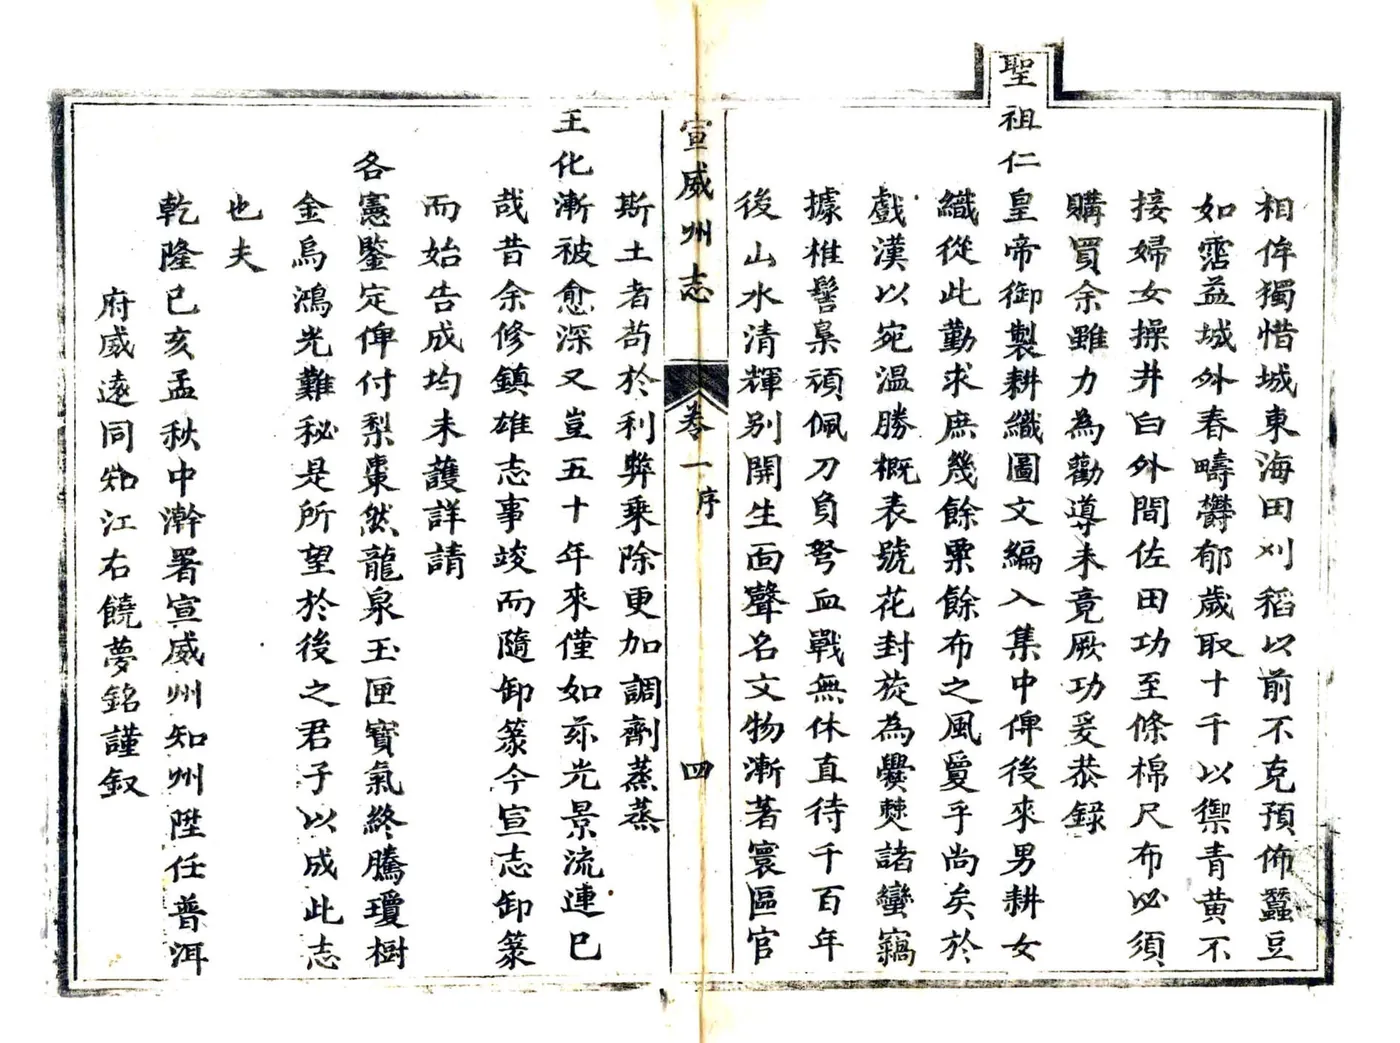 相侔獨惜城東海田刈稻以前不克預佈蠶豆
如霑益城外春疇欝郁歲取十千以禦青黃不
接婦女操井臼外間佐田功至條棉尺布必須
購買余雖力為勸導未竟厥功爰恭録
聖祖仁皇帝御製耕織圖文編入集中俾後來男耕女
織從此勤求庶幾餘粟餘布之風爰乎尚矣於
戲漢以宛溫勝概表號花封旋為爨僰諸蠻竊
據椎髻梟頑佩刀負弩血戰無休直待千百年
後山水清輝别開生面聲名文物漸著寰區官
宣威州志 卷一序 四
斯土者苟於利弊乗除更加調劑蒸蒸
王化漸被愈深又豈五十年來僅如茲光景流連已
哉昔余修鎮雄志事竣而隨卸篆今宣志卸篆
而始告成均未護詳請
各憲鑒定俾付梨棗然龍泉玉匣寶氣終騰瓊樹
金烏鴻光難秘是所望於後之君子以成此志
也夫
乾隆己亥孟秋中澣署宣威州知州陞任普洱
府威遠同知江右饒夢銘謹叙